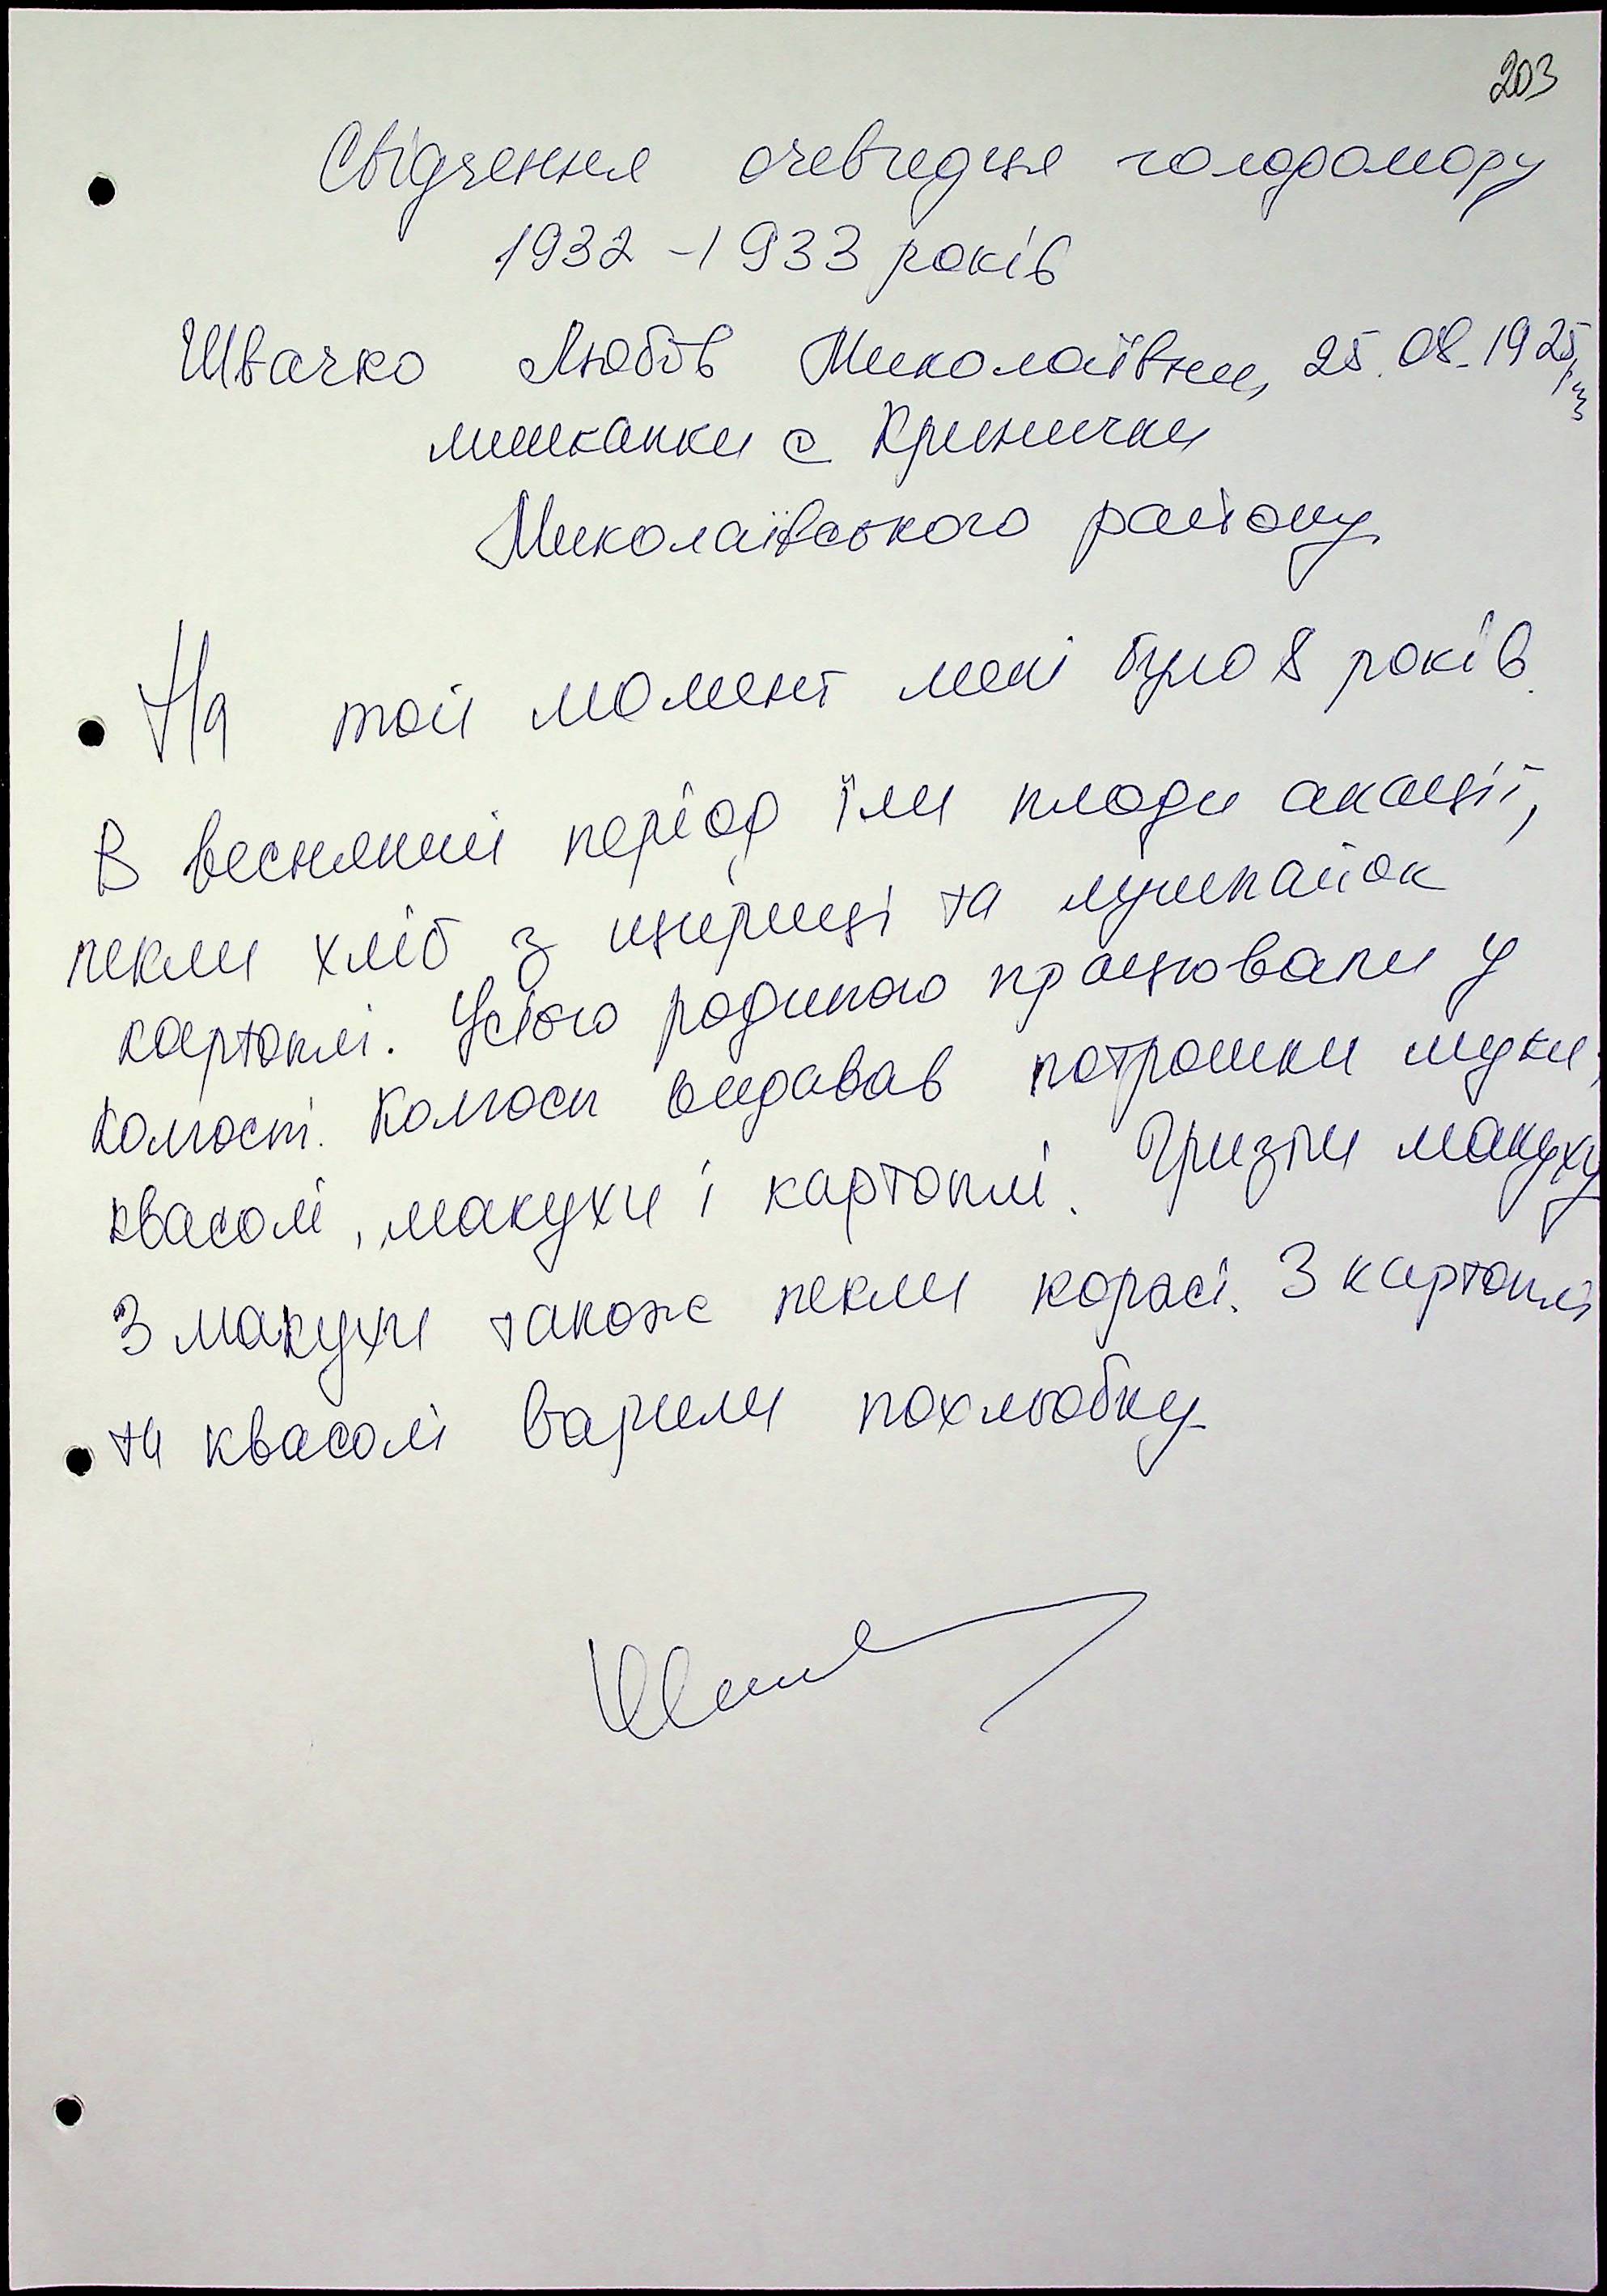 203
Свідчення очевидця голодомору
1932-1933 років
Швачко Любов Миколаївни, 25.08.1925
мешканки с Кринички
Миколаївського району
На той момент мені було 8 років.
В весняний період їли плоди акації,
пекли хліб з щириці та лушпайок
картоплі. Усією родиною працювали у
колгоспі. Колгосп видавав потрошки муки,
квасолі, макухи і картоплі. Гризли макуху
З макухи також пекли коржі. З картоплі
та квасолі варили похльобку